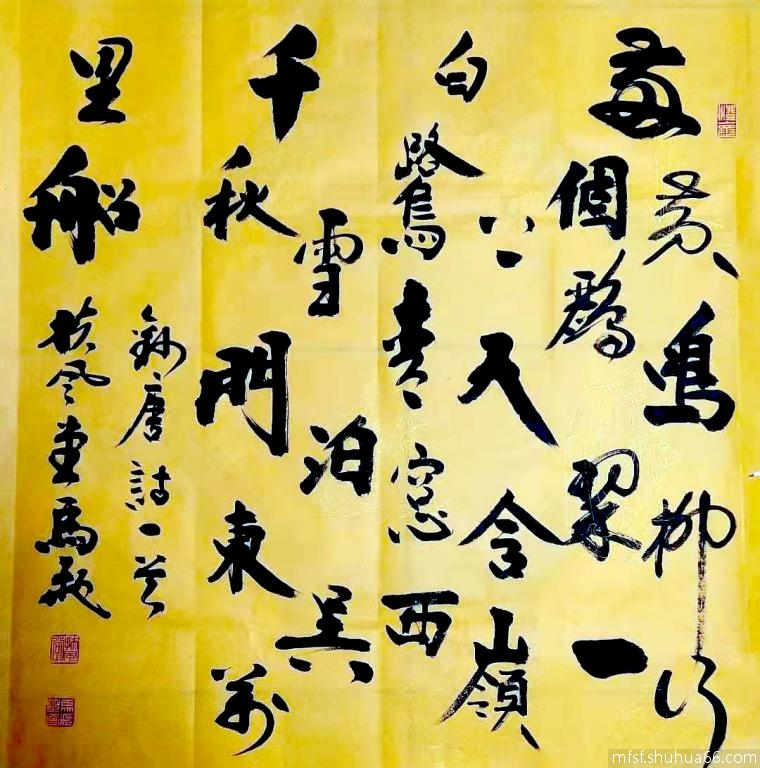 兩個黃鸝鳴翠柳一行
白鷺上青天窓含西嶺
千秋雪門泊東吳萬
里船
錄唐詩一首
扶风堂馬
mfsf.shuhua66.com